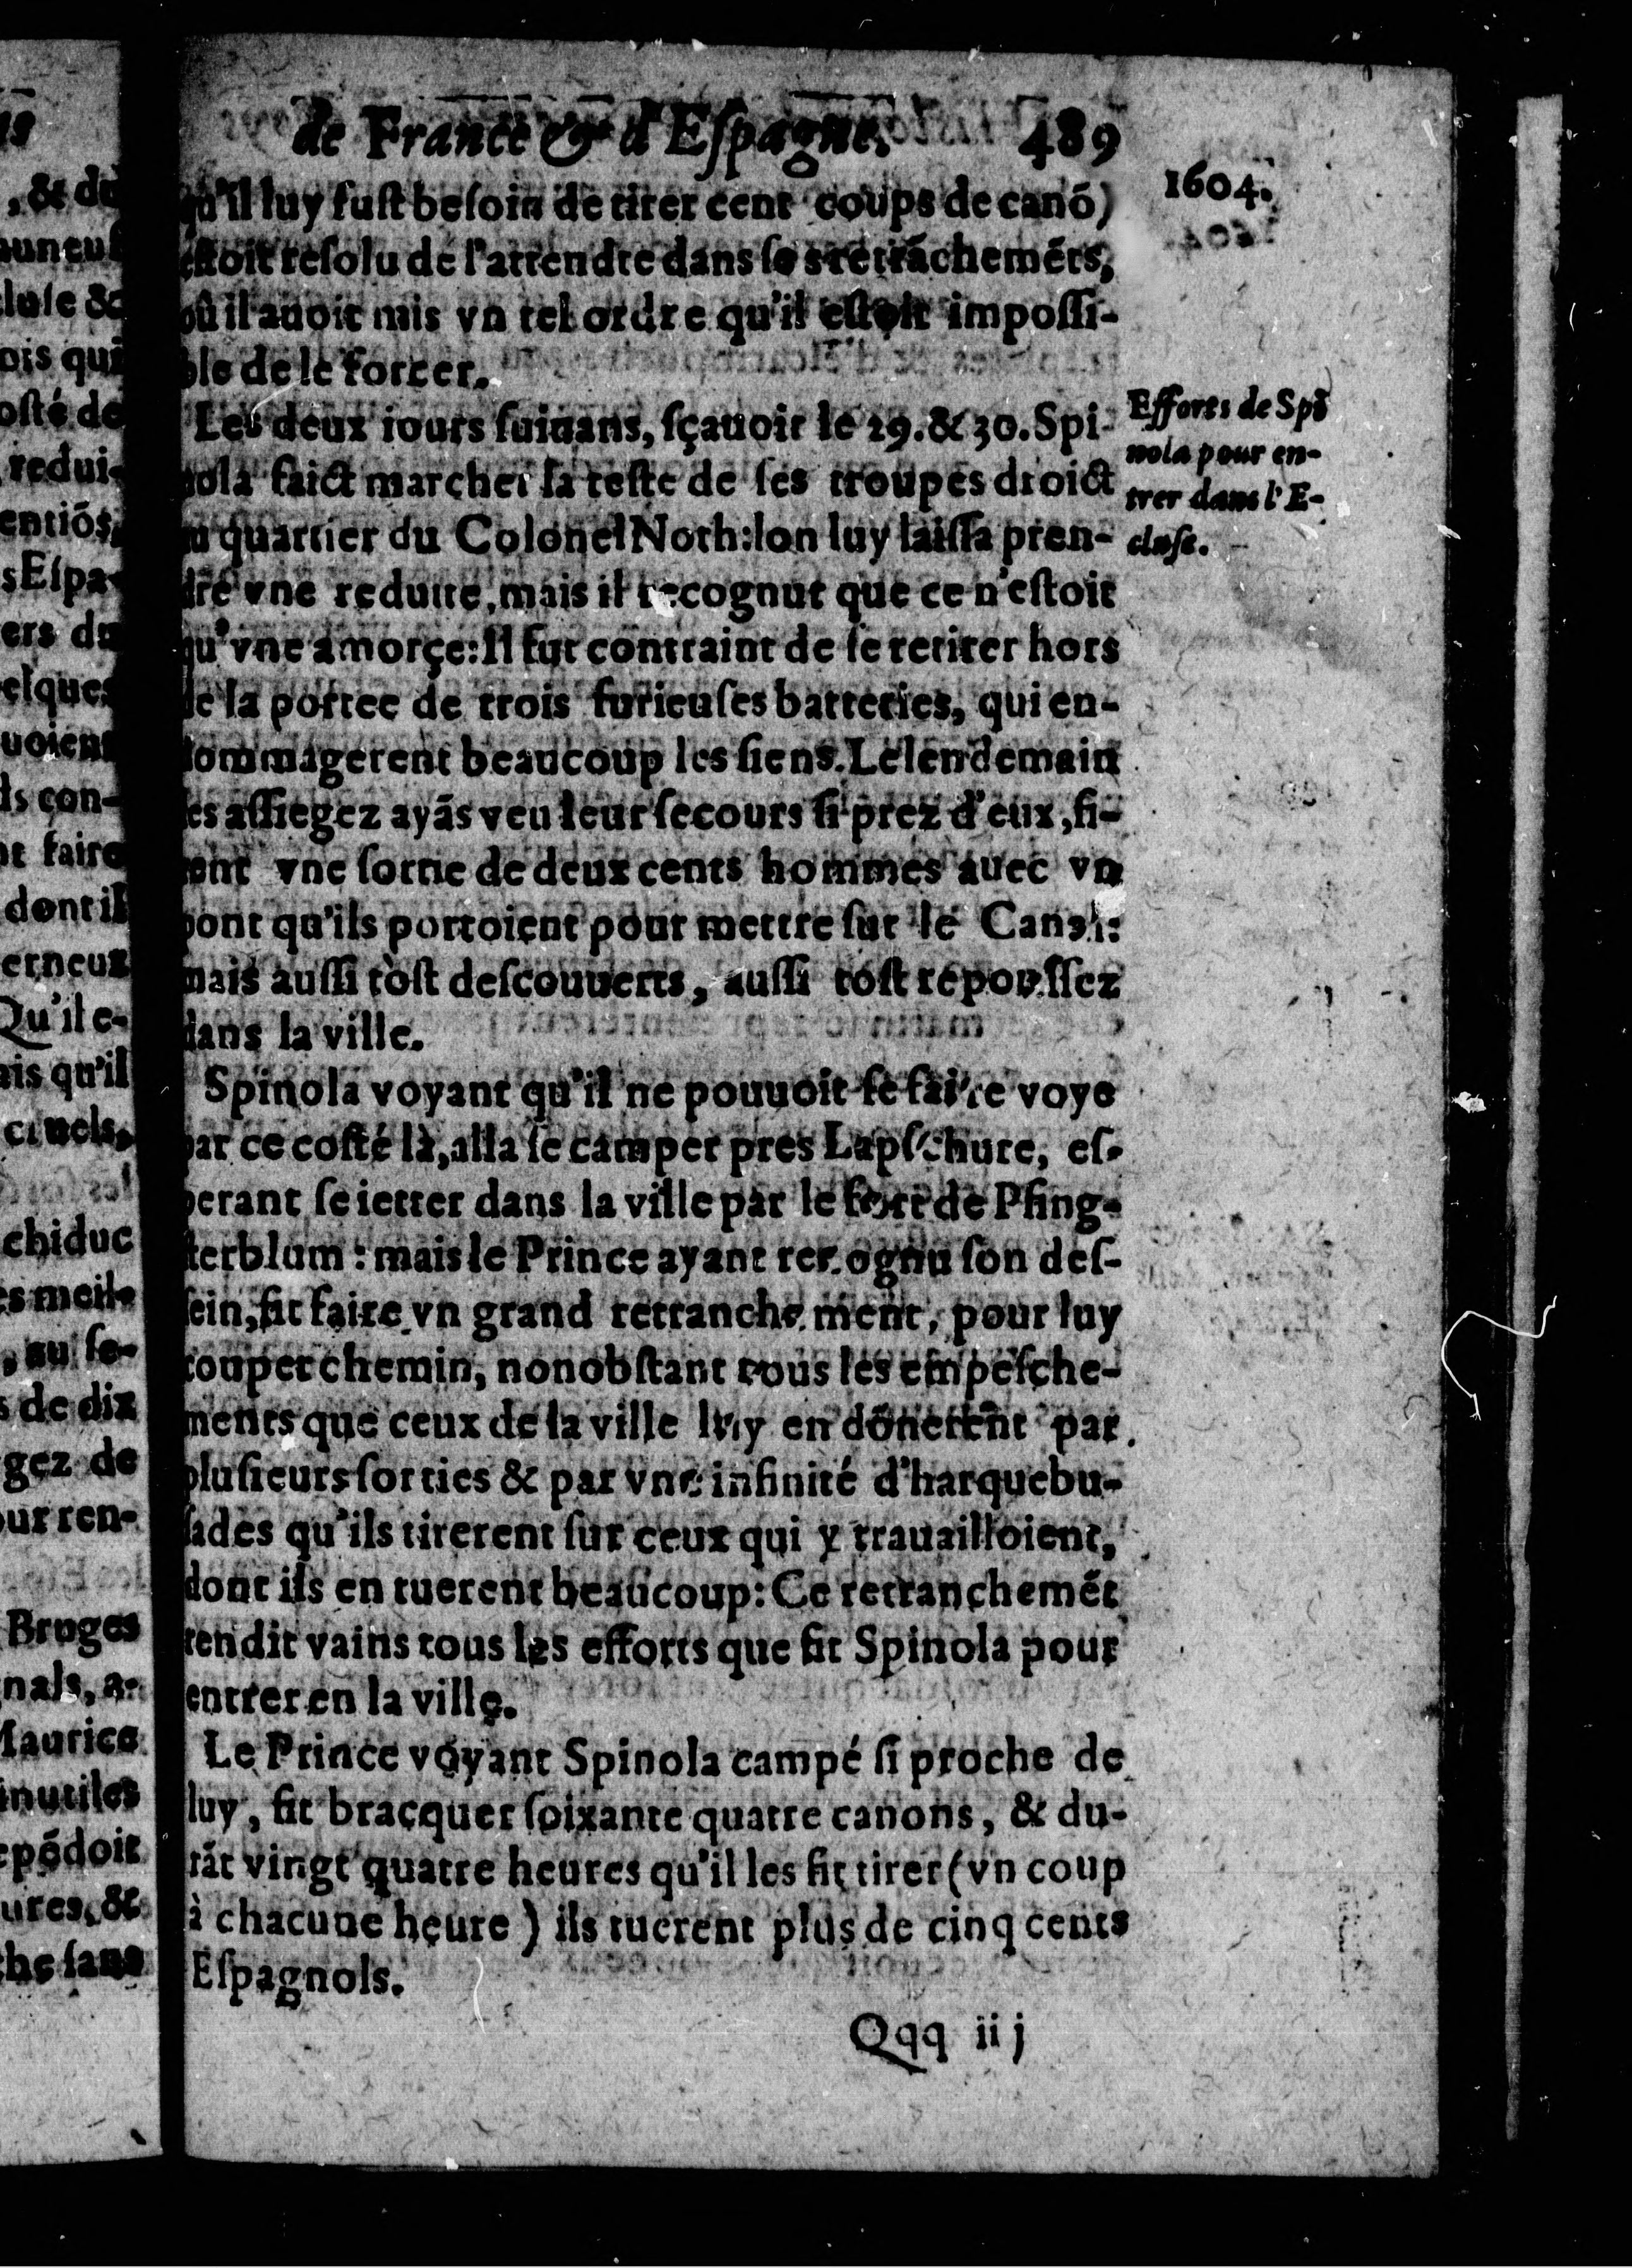 de France & d'Eſpagne. 489
1604.
qu'il luy fuſt beſoin de tirer cent coups de canõ)
eſtoit reſolu de l'attendre dans ſes retrãchemẽts,
où il auoit mis vn tel ordre qu'il eſtoit impoſſi-
ble de le forcer.
Les deux iours ſuiuans, ſçauoir le 29. & 30. Spi-
nola faict marcher la teſte de ſes troupes droict
au quartier du Colonel Noth: lon luy laiſſa pren-
dre vne reduite, mais il recognut que ce n'eſtoit
qu'vne amorçe: Il fut contraint de ſe retirer hors
de la portee de trois furieuſes batteries, qui en-
dommagerent beaucoup les ſiens. Le lendemain
les aſſiegez ayãs veu leur ſecours ſi prez d'eux, fi-
rent vne ſortie de deux cents hommes auec vn
pont qu'ils portoient pour mettre ſur le Canal:
mais auſſi toſt deſcouuerts, auſſi toſt repouſſez
dans la ville.
Spinola voyant qu'il ne pouuoit ſe faire voye
par ce coſté là, alla ſe camper pres Lapſchure, eſ-
perant ſe ietter dans la ville par le fort de Pfing-
ſterblum: mais le Prince ayant recognu ſon deſ-
ſein, fit faire vn grand retranchement, pour luy
couper chemin, nonobſtant tous les empeſche-
ments que ceux de la ville luy en dõnerẽnt par
pluſieurs ſorties & par vne infinité d'harquebu-
ſades qu'ils tirerent ſur ceux qui y trauailloient,
dont ils en tuerent beaucoup: Ce retranchemẽt
rendit vains tous les efforts que fit Spinola pour
entrer en la ville.
Le Prince voyant Spinola campé ſi proche de
luy, fit bracquer ſoixante quatre canons, & du-
rãt vingt quatre heures qu'il les fit tirer (vn coup
à chacune heure) ils tuerent plus de cinq cents
Eſpagnols.
Qqq iij
Efforts de Spi
nola pour en-
trer dans l'E-
cluſe.